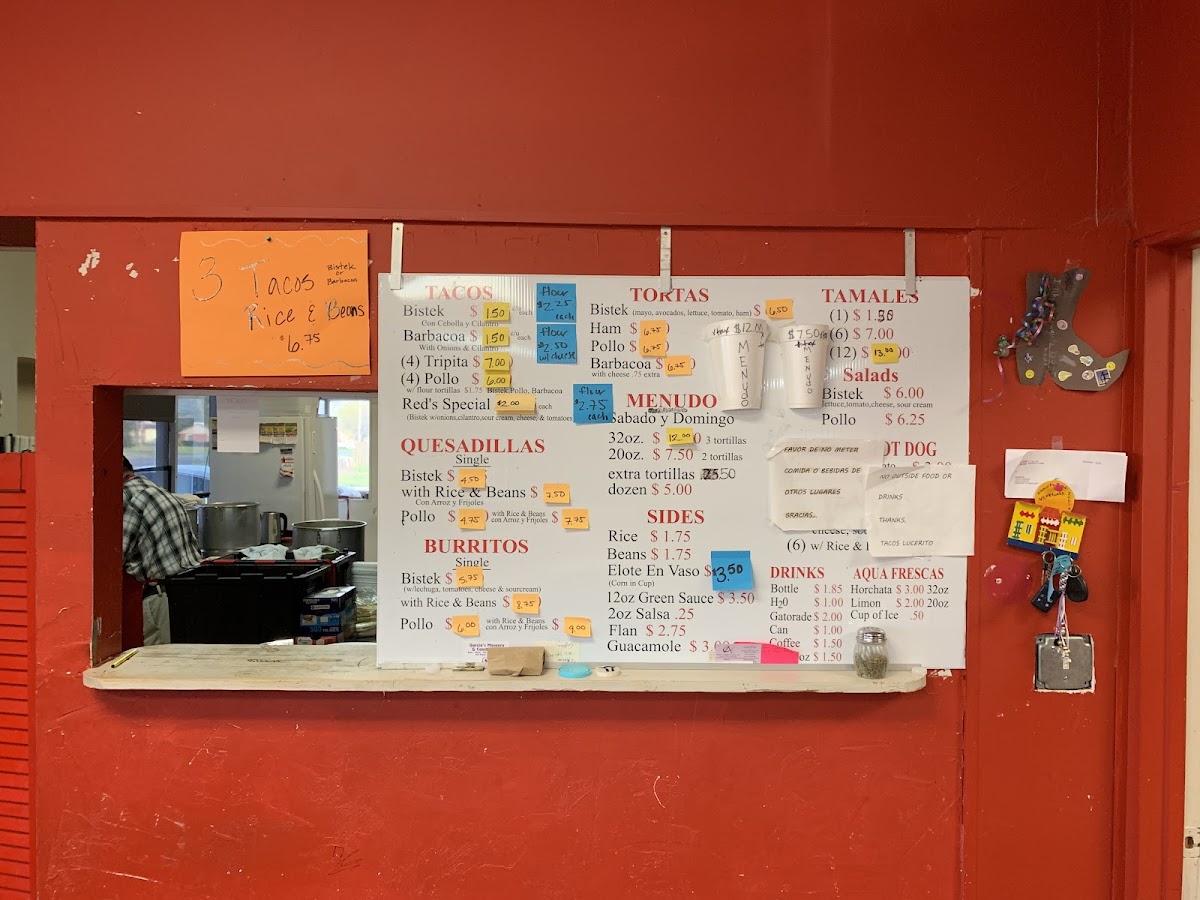 3 Tacos Bistek
or
Barbacoa
Rice & Beans
$6.75
TACOS
Bistek $ 1.50 each
Con Cebolla y Cilantro
Barbacoa $ 1.50 c/u each
With Onions & Cilantro
(4) Tripita $ 7.00
(4) Pollo $ 6.00
w/ flour tortillas $1.75 Bistek,Pollo, Barbacoa
Red's Special $2.00 each
(Bistek w/onions,cilantro,sour cream, cheese, & tomatoes
flour
$2.25
each
flour
$2.50
w/cheese
flour
$2.75
each
QUESADILLAS
Single
Bistek $ 4.50
with Rice & Beans $ 7.50
Con Arroz y Frijoles
Pollo $ 4.75 with Rice & Beans
con Arroz y Frijoles $ 7.75
BURRITOS
Single
Bistek $ 5.75
(w/lechuga, tomatoes, cheese & sourcream)
with Rice & Beans $ 8.75
Pollo $ 6.00 with Rice & Beans
con Arroz y Frijoles $ 9.00
TORTAS
Bistek (mayo, avocados, lettuce, tomato, ham) $ 6.50
Ham $ 6.75
Pollo $ 6.75
Barbacoa $ 6.75
with cheese .75 extra
MENUDO
Sabado y Domingo
32oz. $ 12.00 3 tortillas
20oz. $ 7.50 2 tortillas
extra tortillas .50
dozen $ 5.00
$12.00
MENUDO
$7.50
MENUDO
SIDES
Rice $ 1.75
Beans $ 1.75
Elote En Vaso $ $3.50
(Corn in Cup)
12oz Green Sauce $ 3.50
2oz Salsa .25
Flan $ 2.75
Guacamole $ 3.00
TAMALES
(1) $ 1.50
(6) $ 7.00
(12) $ 13.00
Salads
Bistek $ 6.00
lettuce,tomato,cheese, sour cream
Pollo $ 6.25
OT DOG
cheese,
(6) w/ Rice &
FAVOR DE NO METER
COMIDA O BEBIDAS DE
OTROS LUGARES
GRACIAS..
NO OUTSIDE FOOD OR
DRINKS
THANKS,
TACOS LUCERITO
DRINKS
Bottle $ 1.85
H20 $ 1.00
Gatorade $ 2.00
Can $ 1.00
Coffee $ 1.50
oz $ 1.50
AQUA FRESCAS
Horchata $ 3.00 32oz
Limon $ 2.00 20oz
Cup of Ice .50